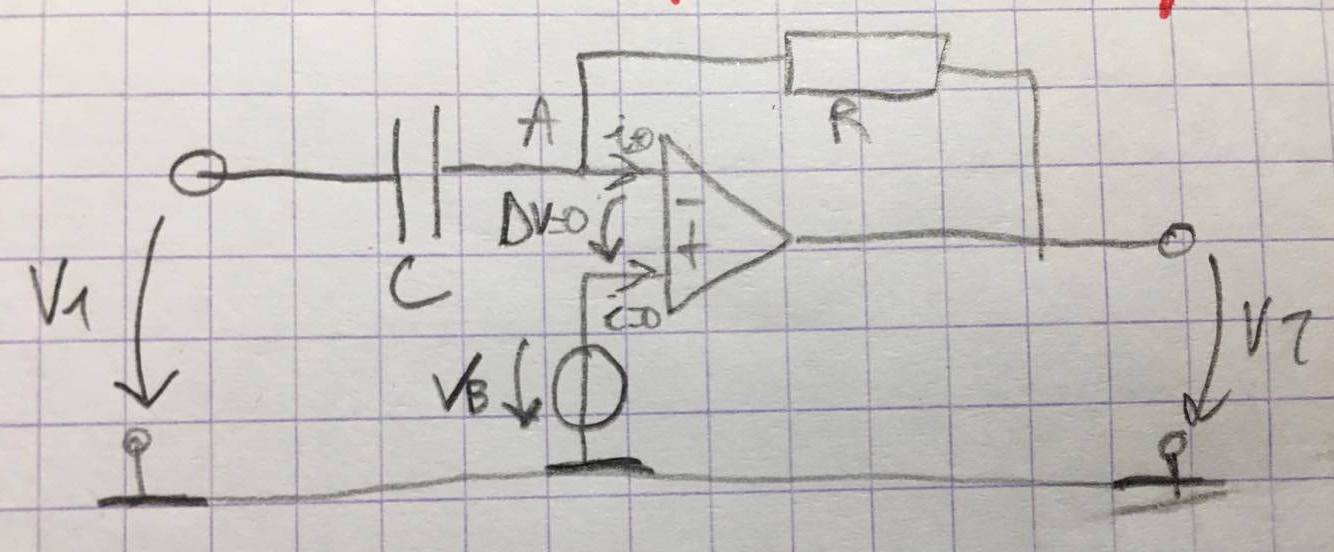 R
A
i=0
V1
C
ΔV=0
-
+
i=0
VB
V2